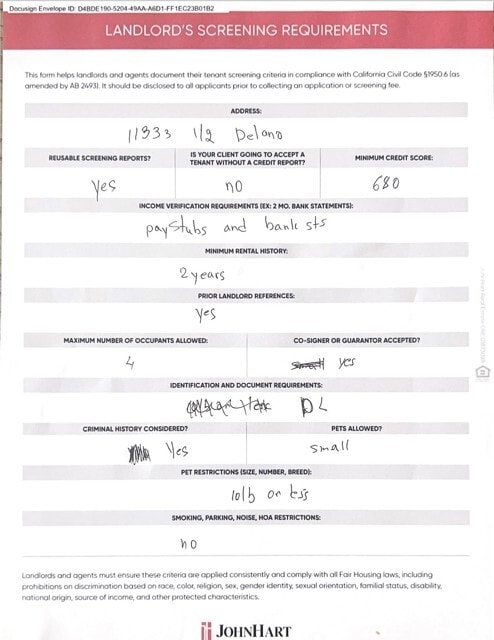 Docusign Envelope ID: D4BDE190-5204-49AA-A6D1-FF1EC23B01B2
LANDLORD'S SCREENING REQUIREMENTS
This form helps landlords and agents document their tenant screening criteria in compliance with California Civil Code §1950.6 (as
amended by AB 2493). It should be disclosed to all applicants prior to collecting an application or screening fee.
ADDRESS:
11933 1/2 Delano
REUSABLE SCREENING REPORTS?
Yes
IS YOUR CLIENT GOING TO ACCEPT A
TENANT WITHOUT A CREDIT REPORT?
no
MINIMUM CREDIT SCORE:
680
INCOME VERIFICATION REQUIREMENTS (EX: 2 MO. BANK STATEMENTS):
pay stubs and bank sts
MINIMUM RENTAL HISTORY:
2 years
PRIOR LANDLORD REFERENCES:
yes
MAXIMUM NUMBER OF OCCUPANTS ALLOWED:
4
CO-SIGNER OR GUARANTOR ACCEPTED?
yes
IDENTIFICATION AND DOCUMENT REQUIREMENTS:
DL
CRIMINAL HISTORY CONSIDERED?
Yes
PETS ALLOWED?
small
PET RESTRICTIONS (SIZE, NUMBER, BREED):
10lb or less
SMOKING, PARKING, NOISE, HOA RESTRICTIONS:
no
Landlords and agents must ensure these criteria are applied consistently and comply with all Fair Housing laws, including
prohibitions on discrimination based on race, color, religion, sex, gender identity, sexual orientation, familial status, disability,
national origin, source of income, and other protected characteristics.
JOHNHART